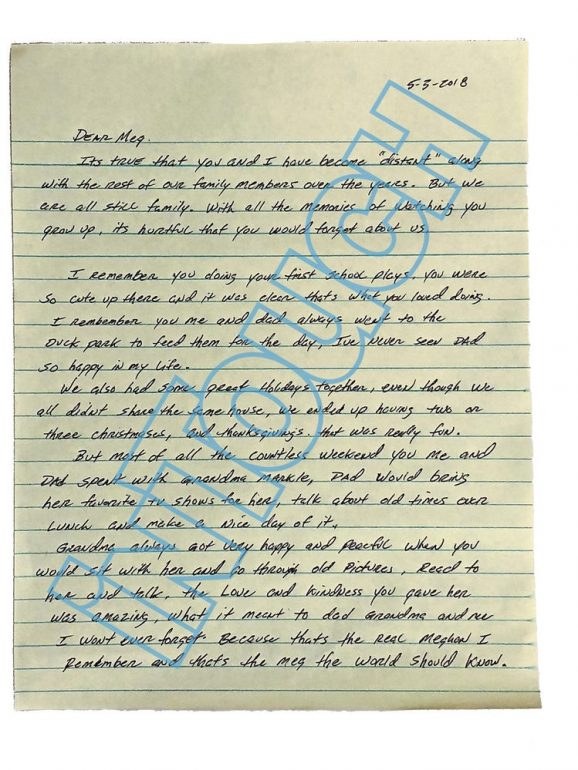 5-3-2018
DEAR Meg.
Its TRUE that you and I have become "distant" along
with the rest of our family members over the years. But we
are all still family. With all the memories of watching you
grow up, its hurtful that you would forget about us.
I remember you doing your first school plays. you were
so cute up there and it was clear thats what you loved doing.
I remember you me and dad always went to the
Duck park to feed them for the day, Ive never seen DAD
so happy in my life.
We also had some great Holidays together, even though we
all didnt share the same house, we ended up having two or
three christmases, and thanksgivings. that was really fun.
But most of all the countless weekend you me and
DAD spent with Grandma Markle, DAD would bring
her favorite tv shows for her, talk about old times over
LUNCH and make a nice day of it.
Grandma always got very happy and peacful when you
would sit with her and go through old Pictures, Read to
her and talk. the Love and Kindness you gave her
was amazing. What it meant to dad Grandma and me
I wont ever forget. Because thats the real Meghan I
Remember and thats the meg the world should know.
INTOUCH